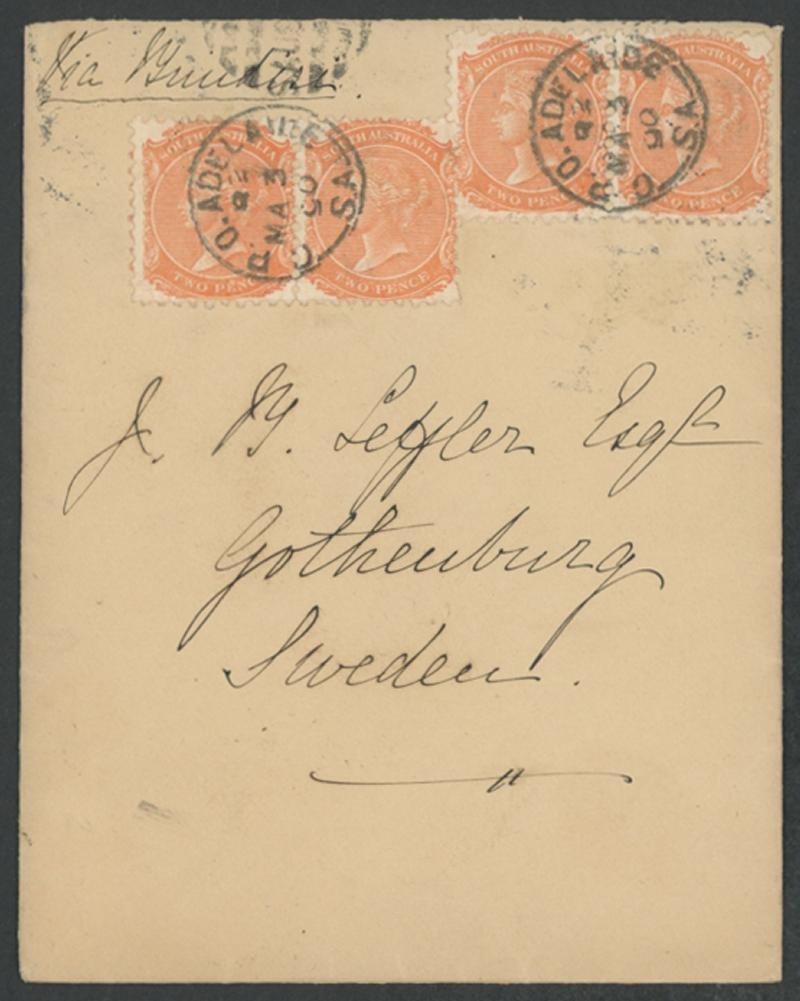 Via Brindisi.
SOUTH AUSTRALIA
TWO PENCE
SOUTH AUSTRALIA
TWO PENCE
G.P.O. ADELAIDE S.A.
MA 3
90
SOUTH AUSTRALIA
TWO PENCE
SOUTH AUSTRALIA
TWO PENCE
G.P.O. ADELAIDE S.A.
MA 3
90
J. M. Leffler Esqr
Gothenburg
Sweden.